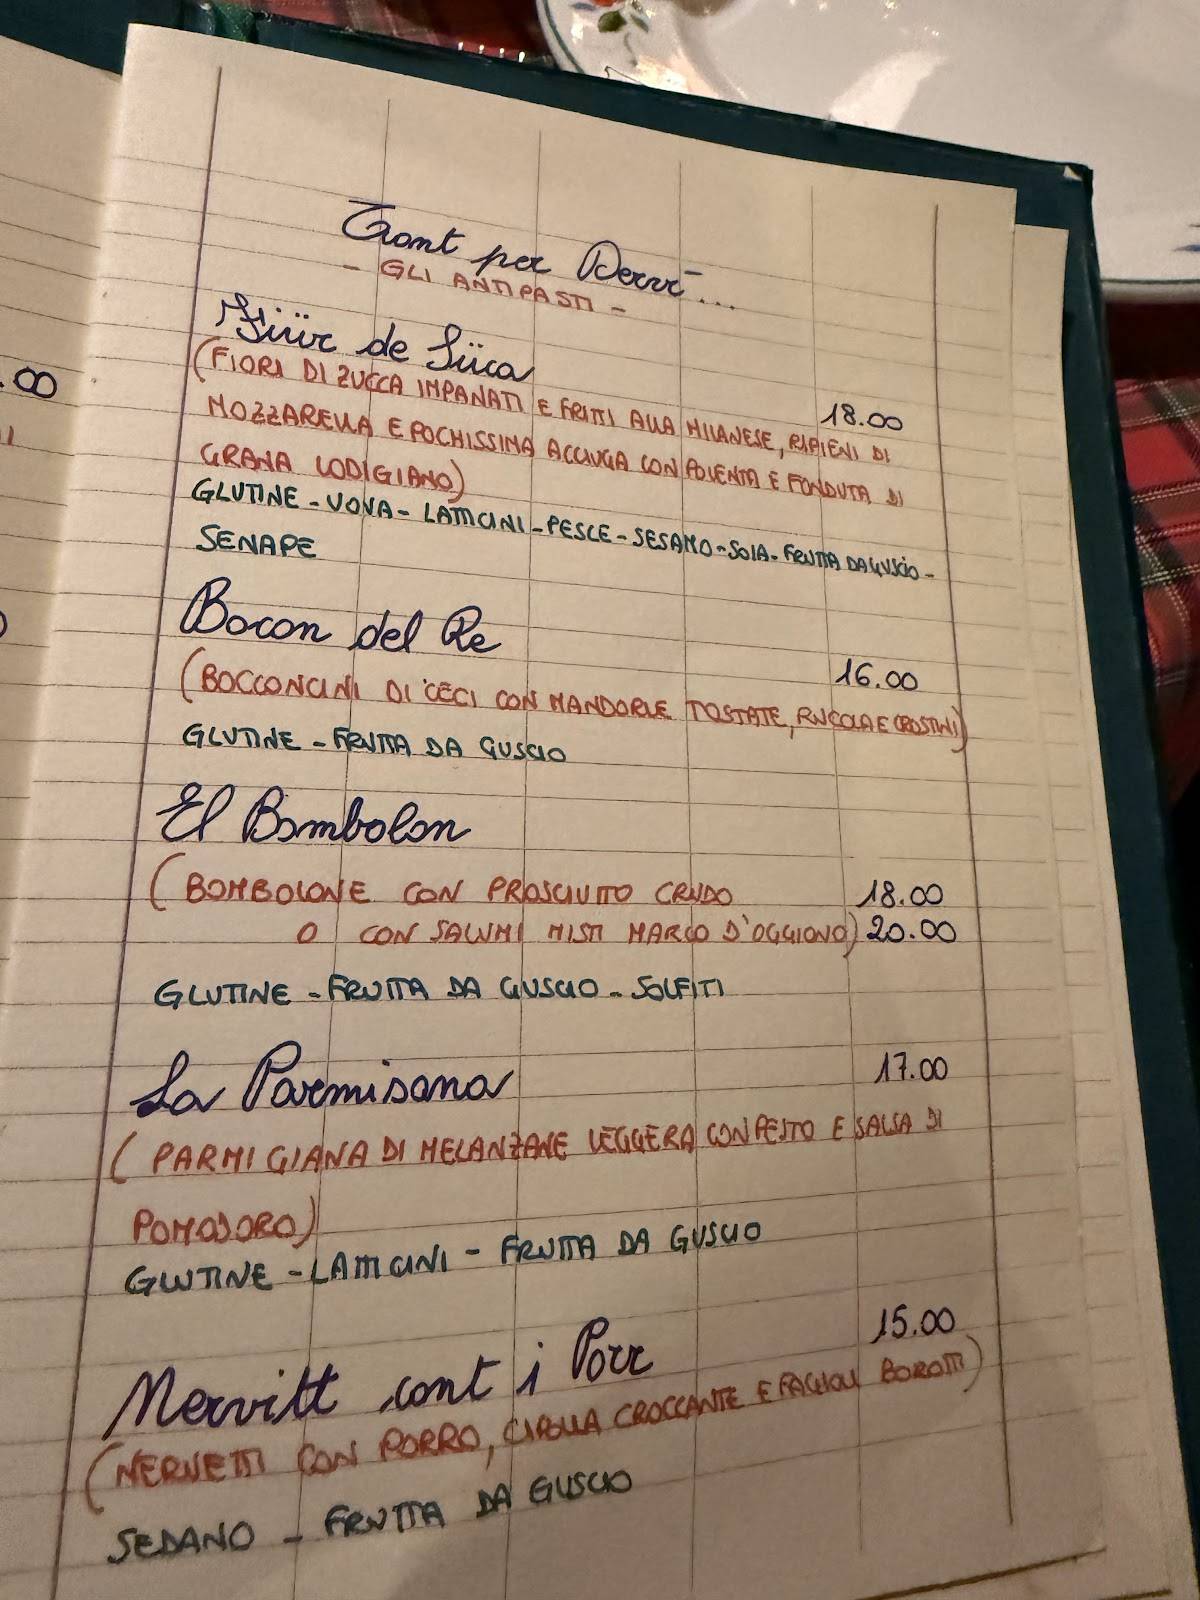 Tront per Dervì...
- GLI ANTIPASTI -
Fiüür de Süca
(FIORI DI ZUCCA IMPANATI E FRITTI ALLA MILANESE, RIPIENI DI 18.00
MOZZARELLA E POCHISSIMA ACCIUGA CON POLENTA E FONDUTA DI
GRANA LODIGIANO)
GLUTINE - UOVA - LATTICINI - PESCE - SESAMO - SOIA - FRUTTA DA GUSCIO -
SENAPE
Bocon del Re
16.00
(BOCCONCINI DI CECI CON MANDORLE TOSTATE, RUCOLA E CROSTINI)
GLUTINE - FRUTTA DA GUSCIO
El Bombolon
(BOMBOLONE CON PROSCIUTTO CRUDO 18.00
O CON SALUMI MISTI MARCO D'OGGIONO) 20.00
GLUTINE - FRUTTA DA GUSCIO - SOLFITI
La Parmisana 17.00
(PARMIGIANA DI MELANZANE LEGGERA CON PESTO E SALSA DI
POMODORO)
GLUTINE - LATTICINI - FRUTTA DA GUSCIO
Nervitt cont i Porr 15.00
(NERVETTI CON PORRO, CIPOLLA CROCCANTE E FAGIOLI BOROTTI)
SEDANO - FRUTTA DA GUSCIO
.00